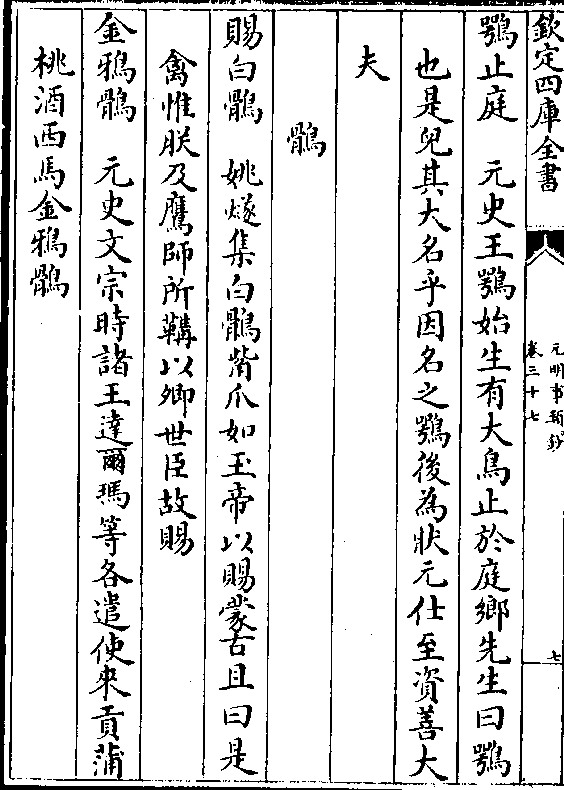 欽定四庫全書
元明事類鈔
卷三十七
七
鶚止庭　元史王鶚始生有大鳥止於庭鄉先生曰鶚
也是兒其大名乎因名之鶚後為狀元仕至資善大
夫
鶻
賜白鶻　姚燧集白鶻觜爪如玉帝以賜蒙古且曰是
禽惟朕及鷹師所鞲以卿世臣故賜
金鴉鶻　元史文宗時諸王達爾瑪等各遣使來貢蒲
桃酒西馬金鴉鶻